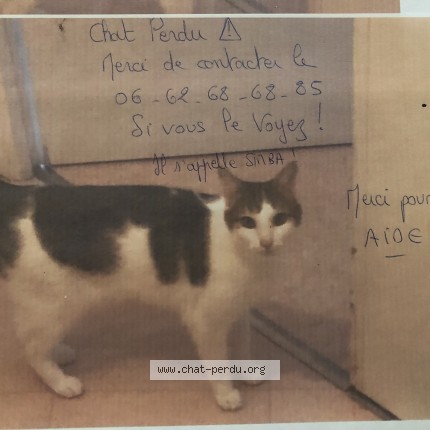 Chat Perdu ⚠
Merci de contacter le
06-62-68-68-85
Si vous le Voyez !
Il s'appelle SIMBA !
Merci pour
AIDE
www.chat-perdu.org